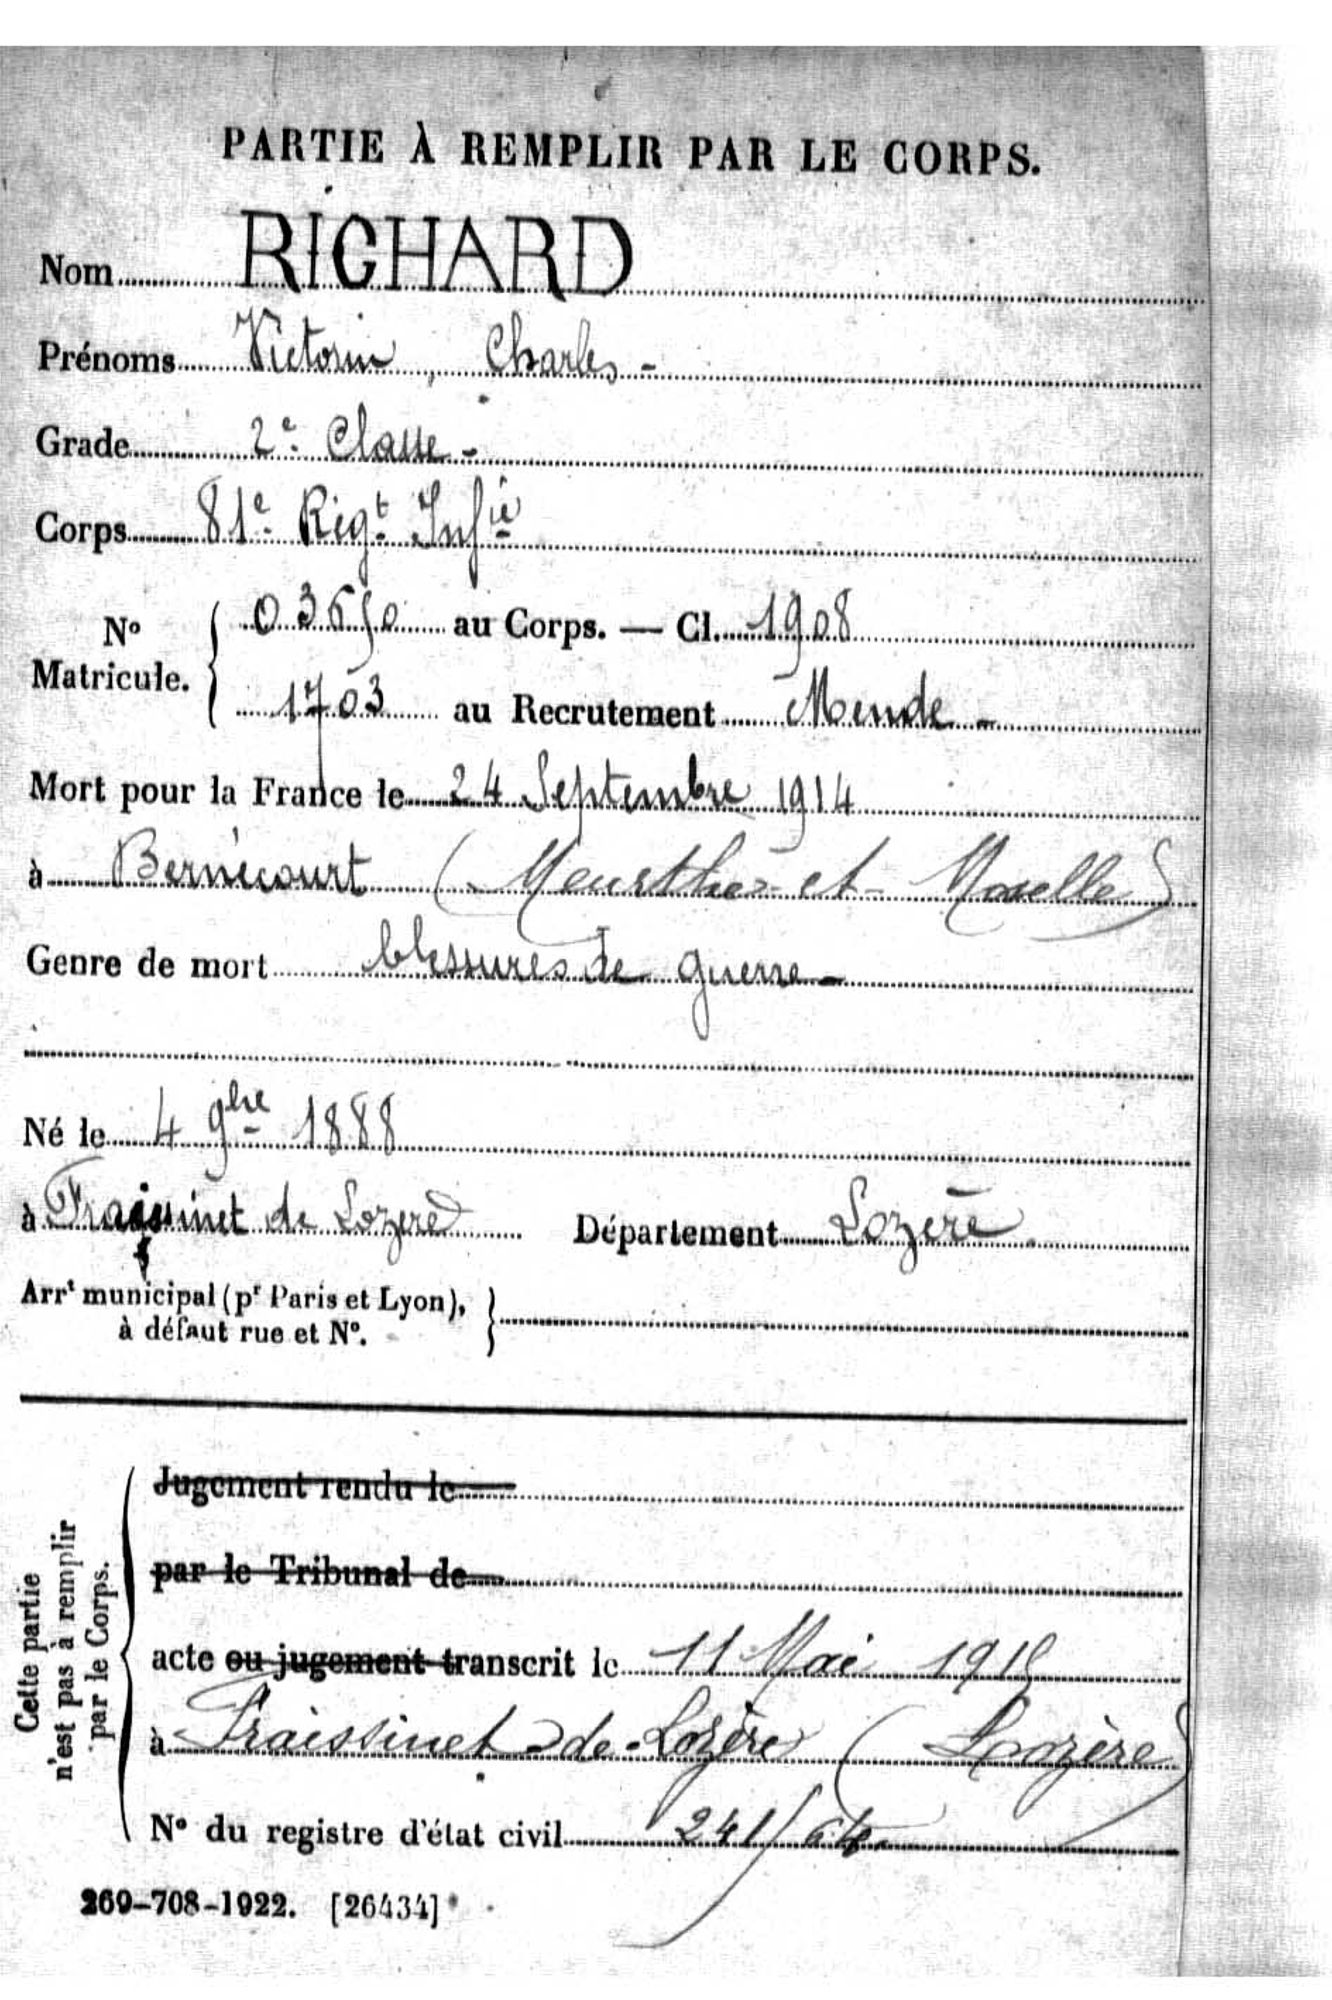 PARTIE À REMPLIR PAR LE CORPS.
Nom RICHARD
Prénoms Victorin, Charles -
Grade 2e Classe -
Corps 81e Régt Infie
No Matricule. { 03650 au Corps. — Cl. 1908
1703 au Recrutement Mende -
Mort pour la France le 24 Septembre 1914
à Bernécourt (Meurthe-et-Moselle)
Genre de mort blessures de guerre -
Né le 4 9bre 1888
à Fraissinet de Lozère Département Lozère
Arrt municipal (pr Paris et Lyon), }
à défaut rue et No.
Cette partie
n'est pas à remplir
par le Corps.
Jugement rendu le
par le Tribunal de
acte ou jugement transcrit le 11 Mai 1915
à Fraissinet-de-Lozère (Lozère)
No du registre d'état civil 241/
269-708-1922. [26434]